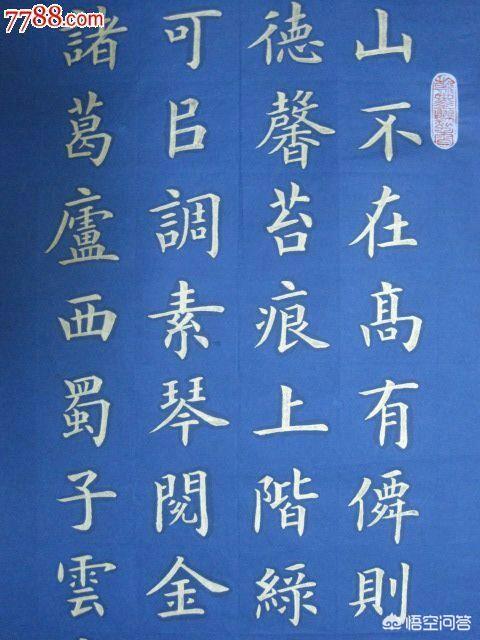 7788.com
山不在高有僊則
德馨苔痕上階綠
可㠯調素琴閱金
諸葛廬西蜀子雲
悟空问答